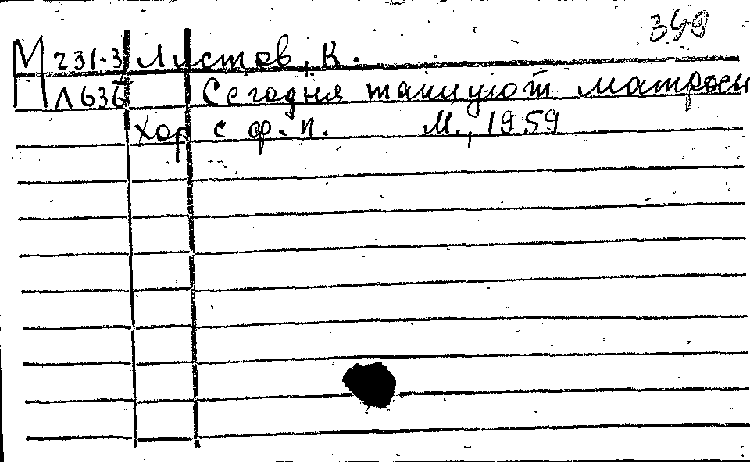 М 231-3 Листов, К.
Л 636 Сегодня танцуют матросы
Хор с ф.-п. М., 1959